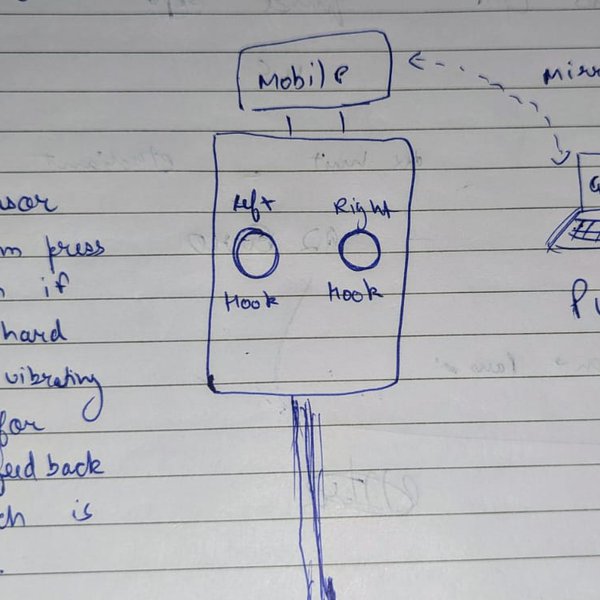 Mobile
Mirr
Left Right
Hook Hook
sor
m press
if
hard
vibrating
for
feed back
ch is
Pu